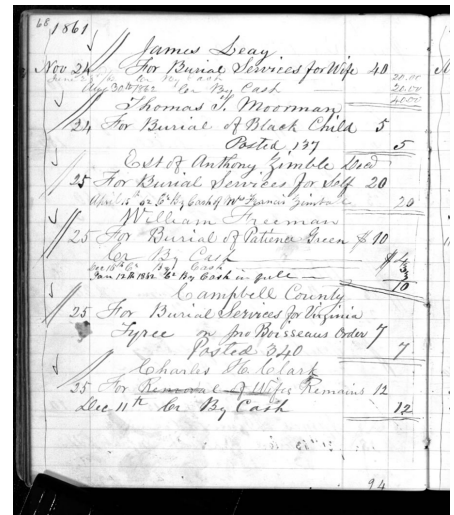 68 1861
James Seay
Nov 24 For Burial Services for Wife 40
By Cash 20.00
Aug 30th 1862 Cr By Cash 20.00
40.00
Thomas T. Moorman
24 For Burial of Black Child 5
Posted 137 5
Est of Anthony Zimble Decd
25 For Burial Services for Self 20
April 5th 62 Cr By Cash of Mrs Francis Zimble 20
William Freeman
25 For Burial of Patience Green $10
Cr By Cash
15th Cr By Cash
Jan 12th 1862 Cr By Cash in full
10
Campbell County
25 For Burial Services for Virginia
Tyree on pro Boisseaus Order 7
Posted 340 7
Charles H. Clark
25 For Removal of Wifes Remains 12
Dec 11th Cr By Cash 12
94